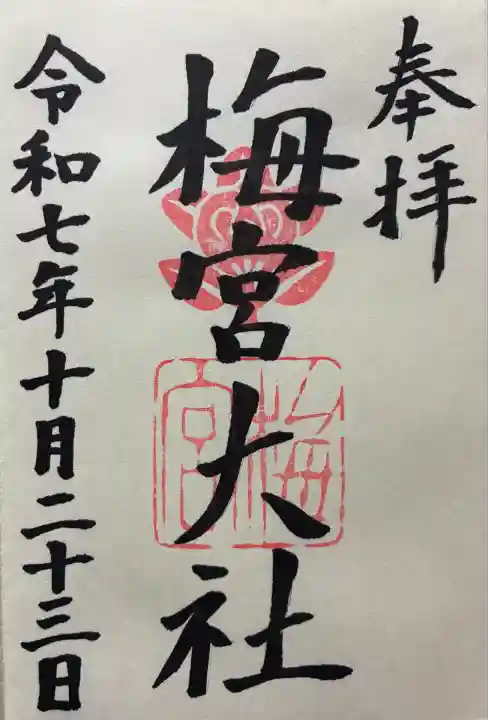 奉拝
梅宮大社
令和七年十月二十三日